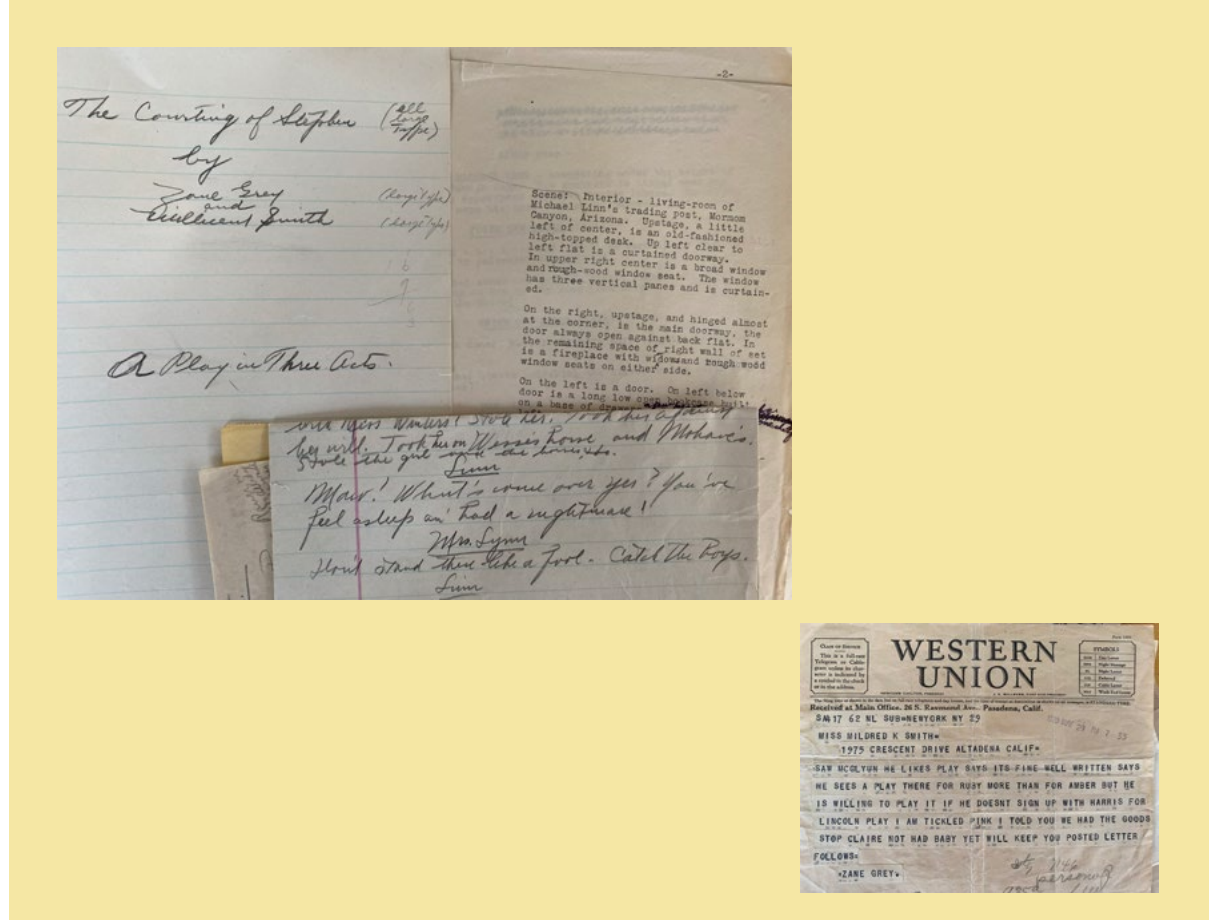 The Courting of Stephen (all
large
type)
by
Zane Grey (large type)
and
Millicent Smith (large type)
A Play in Three Acts.
-2-
Scene: Interior - living-room of
Michael Linn's trading post, Mormon
Canyon, Arizona. Upstage, a little
left of center, is an old-fashioned
high-topped desk. Up left clear to
left flat is a curtained doorway.
In upper right center is a broad window
and rough-wood window seat. The window
has three vertical panes and is curtain-
ed.
On the right, upstage, and hinged almost
at the corner, is the main doorway, the
door always open against back flat. In
the remaining space of right wall of set
is a fireplace with widow and rough wood
window seats on either side.
On the left is a door. On left below
door is a long low open bookcase built
on a base of
Miss Winters! Stole her. Took her against
her will. Took her on Wesses horse and Mohave's.
Stole the girl and the horses,
Linn
Maw! What's come over yer? You've
feel asleep an' had a nightmare!
Mrs. Lynn
Don't stand there like a fool - Catch the Boys.
Linn
CLASS OF SERVICE
This is a full-rate
Telegram or Cable-
gram unless its char-
acter is indicated by
a symbol in the check
or in the address.
WESTERN
UNION
SYMBOLS
Received at Main Office, 26 S. Raymond Ave., Pasadena, Calif.
SA17 62 NL SUB=NEWYORK NY 29
MISS MILDRED K SMITH=
1975 CRESCENT DRIVE ALTADENA CALIF=
SAW MCGLYUN HE LIKES PLAY SAYS ITS FINE WELL WRITTEN SAYS
HE SEES A PLAY THERE FOR RUBY MORE THAN FOR AMBER BUT HE
IS WILLING TO PLAY IT IF HE DOESNT SIGN UP WITH HARRIS FOR
LINCOLN PLAY I AM TICKLED PINK I TOLD YOU WE HAD THE GOODS
STOP CLAIRE NOT HAD BABY YET WILL KEEP YOU POSTED LETTER
FOLLOWS=
=ZANE GREY.